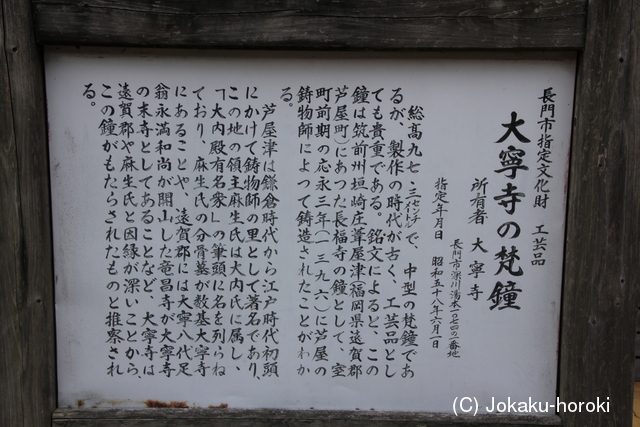 長門市指定文化財　工芸品
大寧寺の梵鐘
所有者　大寧寺
長門市深川湯本一〇七四の一番地
指定年月日　昭和五十八年六月一日
総高九七・三センチメートルで、中型の梵鐘であ
るが、製作の時代が古く、工芸品とし
ても貴重である。銘文によると、この
鐘は筑前州垣崎庄葦屋津(福岡県遠賀郡
芦屋町)にあった長福寺の鐘として、室
町前期の応永三年(一三九六)に芦屋の
鋳物師によって鋳造されたことがわか
る。
芦屋津は鎌倉時代から江戸時代初頭
にかけて鋳物師の里として著名であり、
この地の領主麻生氏は大内氏に属し、
「大内殿有名衆」の筆頭に名を列らね
ており、麻生氏の分骨墓が数基大寧寺
にあることや、遠賀郡には大寧八代足
翁永満和尚が開山した竜昌寺が大寧寺
の末寺としてあることなど、大寧寺は
遠賀郡や麻生氏と因縁が深いことから、
この鐘がもたらされたものと推察され
る。
(C) Jokaku-horoki